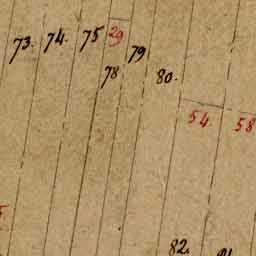 73. 74. 75 29
79
78
80.
54 58
82.